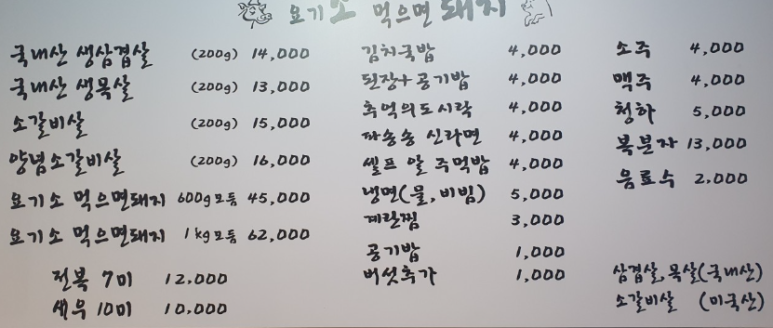 요기소 먹으면돼지
국내산 생삼겹살 (200g) 14,000
국내산 생목살 (200g) 13,000
소갈비살 (200g) 15,000
양념소갈비살 (200g) 16,000
요기소 먹으면돼지 600g모듬 45,000
요기소 먹으면돼지 1kg모듬 62,000
전복 7미 12,000
새우 10미 10,000
김치국밥 4,000
된장+공기밥 4,000
추억의도시락 4,000
파송송 신라면 4,000
셀프 알 주먹밥 4,000
냉면(물,비빔) 5,000
계란찜 3,000
공기밥 1,000
버섯추가 1,000
소주 4,000
맥주 4,000
청하 5,000
복분자 13,000
음료수 2,000
삼겹살,목살(국내산)
소갈비살 (미국산)